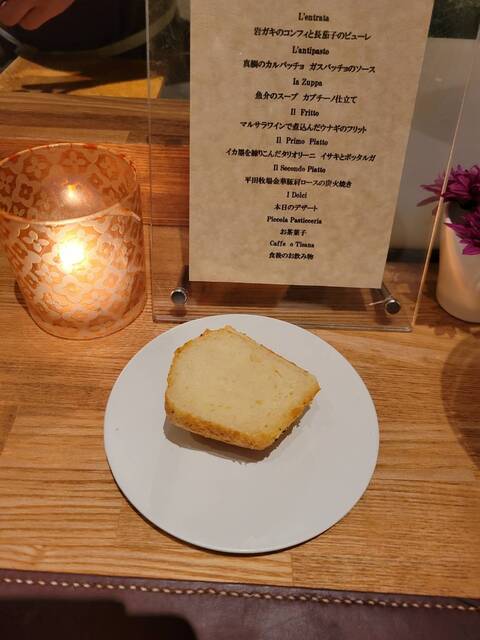 L'entrata
岩ガキのコンフィと長茄子のピューレ
L'antipasto
真鯛のカルパッチョ ガスパッチョのソース
la Zuppa
魚介のスープ カプチーノ仕立て
Il Fritto
マルサラワインで煮込んだウナギのフリット
Il Primo Piatto
イカ墨を練りこんだタリオリーニ イサキとボッタルガ
Il Secondo Piatto
平田牧場金華豚肩ロースの炭火焼き
I Dolci
本日のデザート
Piccola Pasticceria
お茶菓子
Caffe o Tisana
食後のお飲み物